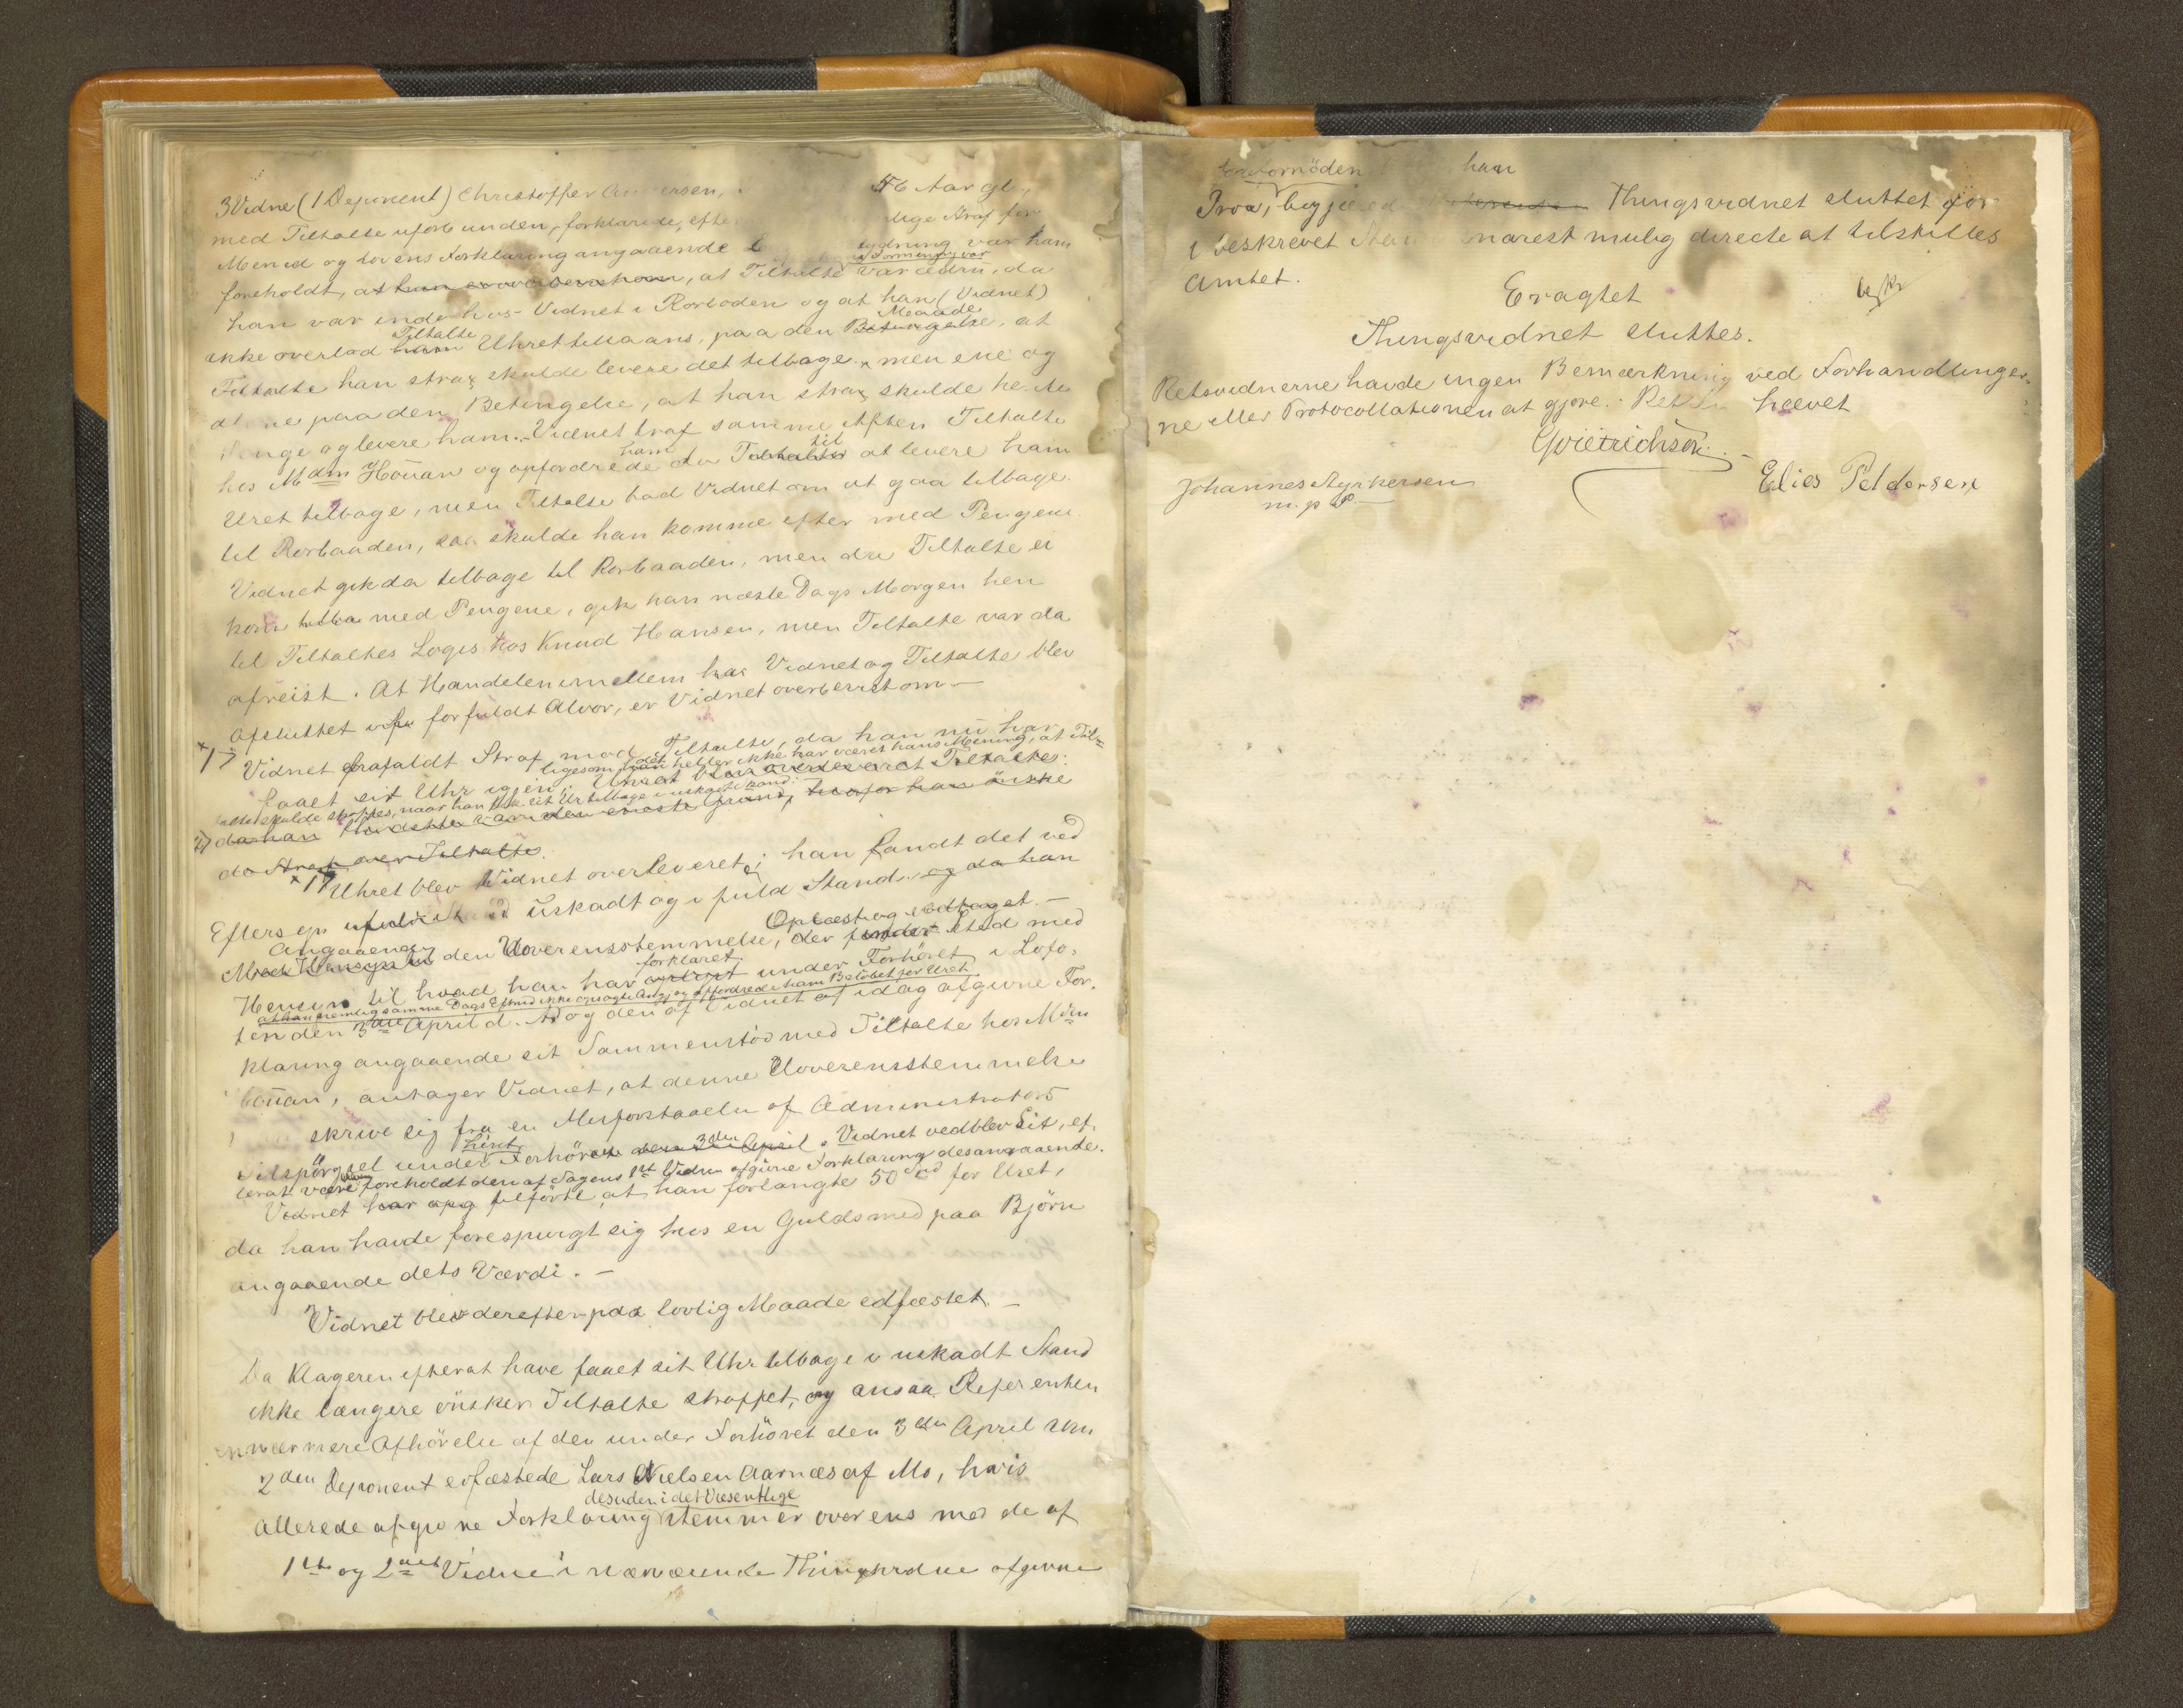 3 Vidne (1 Deponent) Christoffer Andersen, 56 Aar gl.,
med Tiltalte uforbunden, forklarede, efter lige Straf for
Mened og Lovens Forklaring angaaende betydning var ham
i Formening var
foreholdt, at han er overbevist om, at Tiltalte var ædru, da
han var inde hos Vidnet i Rorboden og at han (Vidnet)
Tiltalte Maade
ikke overlod ham Uhret tillaans, paa den Betingelse, at
Tiltalte han strax skulde levere det tilbage, men ene og
alene paa den Betingelse, at han strax skulde hente
Penge og levere ham. - Vidnet traf samme Aften Tiltalte
ham til
hos Mdm Houan og opfordrede da Tiltalte at levere ham
Uret tilbage, men Tiltalte bad Vidnet om at gaa tilbage
til Rorbaaden, saa skulde han komme efter med Pengene
Vidnet gik da tilbage til Rorbaaden, men da Tiltalte ei
kom tilba med Pengene, gik han næste Dags Morgen hen
til Tiltaltes Logis hos Knud Hansen, men Tiltalte var da
afreist. At Handelen imellem ham Vidnet og Tiltalte blev
afsluttet for fuldt Alvor, er Vidnet overbevist om. -
*1) Vidnet frafaldt Straf mod Tiltalte, da han nu har
ligesom det heller ikke har været hans Mening, at Til-
faaet sit Uhr igjen. Uhret blev overleveret Tiltaltes:
talte skulde straffes, naar han fik sit Ur tilbage i uskadt Stand. -
2) da han dette var den eneste Grund, hvorfor han ønske
de Straf over Tiltalte.
*1) Uhret blev Vidnet overleveret; han fandt det ved
Eftersyn uskadt og i fuld Stand. og da han
Oplæst og vedtaget. -
Angaaende
Med Hensyn til den Uoverensstemmelse, der finder Sted med
forklaret
Hensyn til hvad han har under Forhøret i Lofo-
at han nemlig samme Dags Eftmd ikke opsøgte Ang. og opfordrede ham Beløbet for Uret
ten den 3die April d. A. og den af Vidnet af idag afgivne For-
klaring angaaende sit Sammenstød med Tiltalte hos Mdm
Houan, antager Vidnet, at denne Uoverensstemmelse
skrive sig fra en Misforstaaelse af Administrators
hint
Tilspørgsel under Forhøret den 3den April. Vidnet vedblev Sit, ef-
terat være bleven foreholdt den af Sagens 1st Vidne afgivne Forklaring desangaaende.
Vidnet har tilføiet, at han forlangte 50 for Uret,
da han havde forespurgt sig hos en Guldsmed paa Bjørn
angaaende dets Værdi. -
Vidnet blev derefter paa lovlig Maade edfæstet. -
Da Klageren efterat have faaet sit Uhr tilbage i uskadt Stand
ikke længere ønsker Tiltalte straffet, og ansaa Referenten
en nærmere Afhørelse af den under Forhøret den 3die April som
2den Deponent edfæstede Lars Nielsen Aarnæs af Mo, hvis
desuden i det Væsentlige
allerede afgivne Forklaring stemmer overens med de af
1ste og 2det Vidne i nærværende Thingsvidne afgivne
ufornöden han
Prov, begjæred Thingsvidnet sluttet for
i beskrevet Stand snarest mulig directe at tilstilles
Amtet.
Eragtet
Thingsvidnet sluttes.
Retsvidnerne havde ingen Bemærkning ved Forhandlinger-
ne eller Protocollationen at gjøre. - Retten hævet
GDietrichson. -
Johannes Asperksen
m. p. P. -
Elies Peldersen